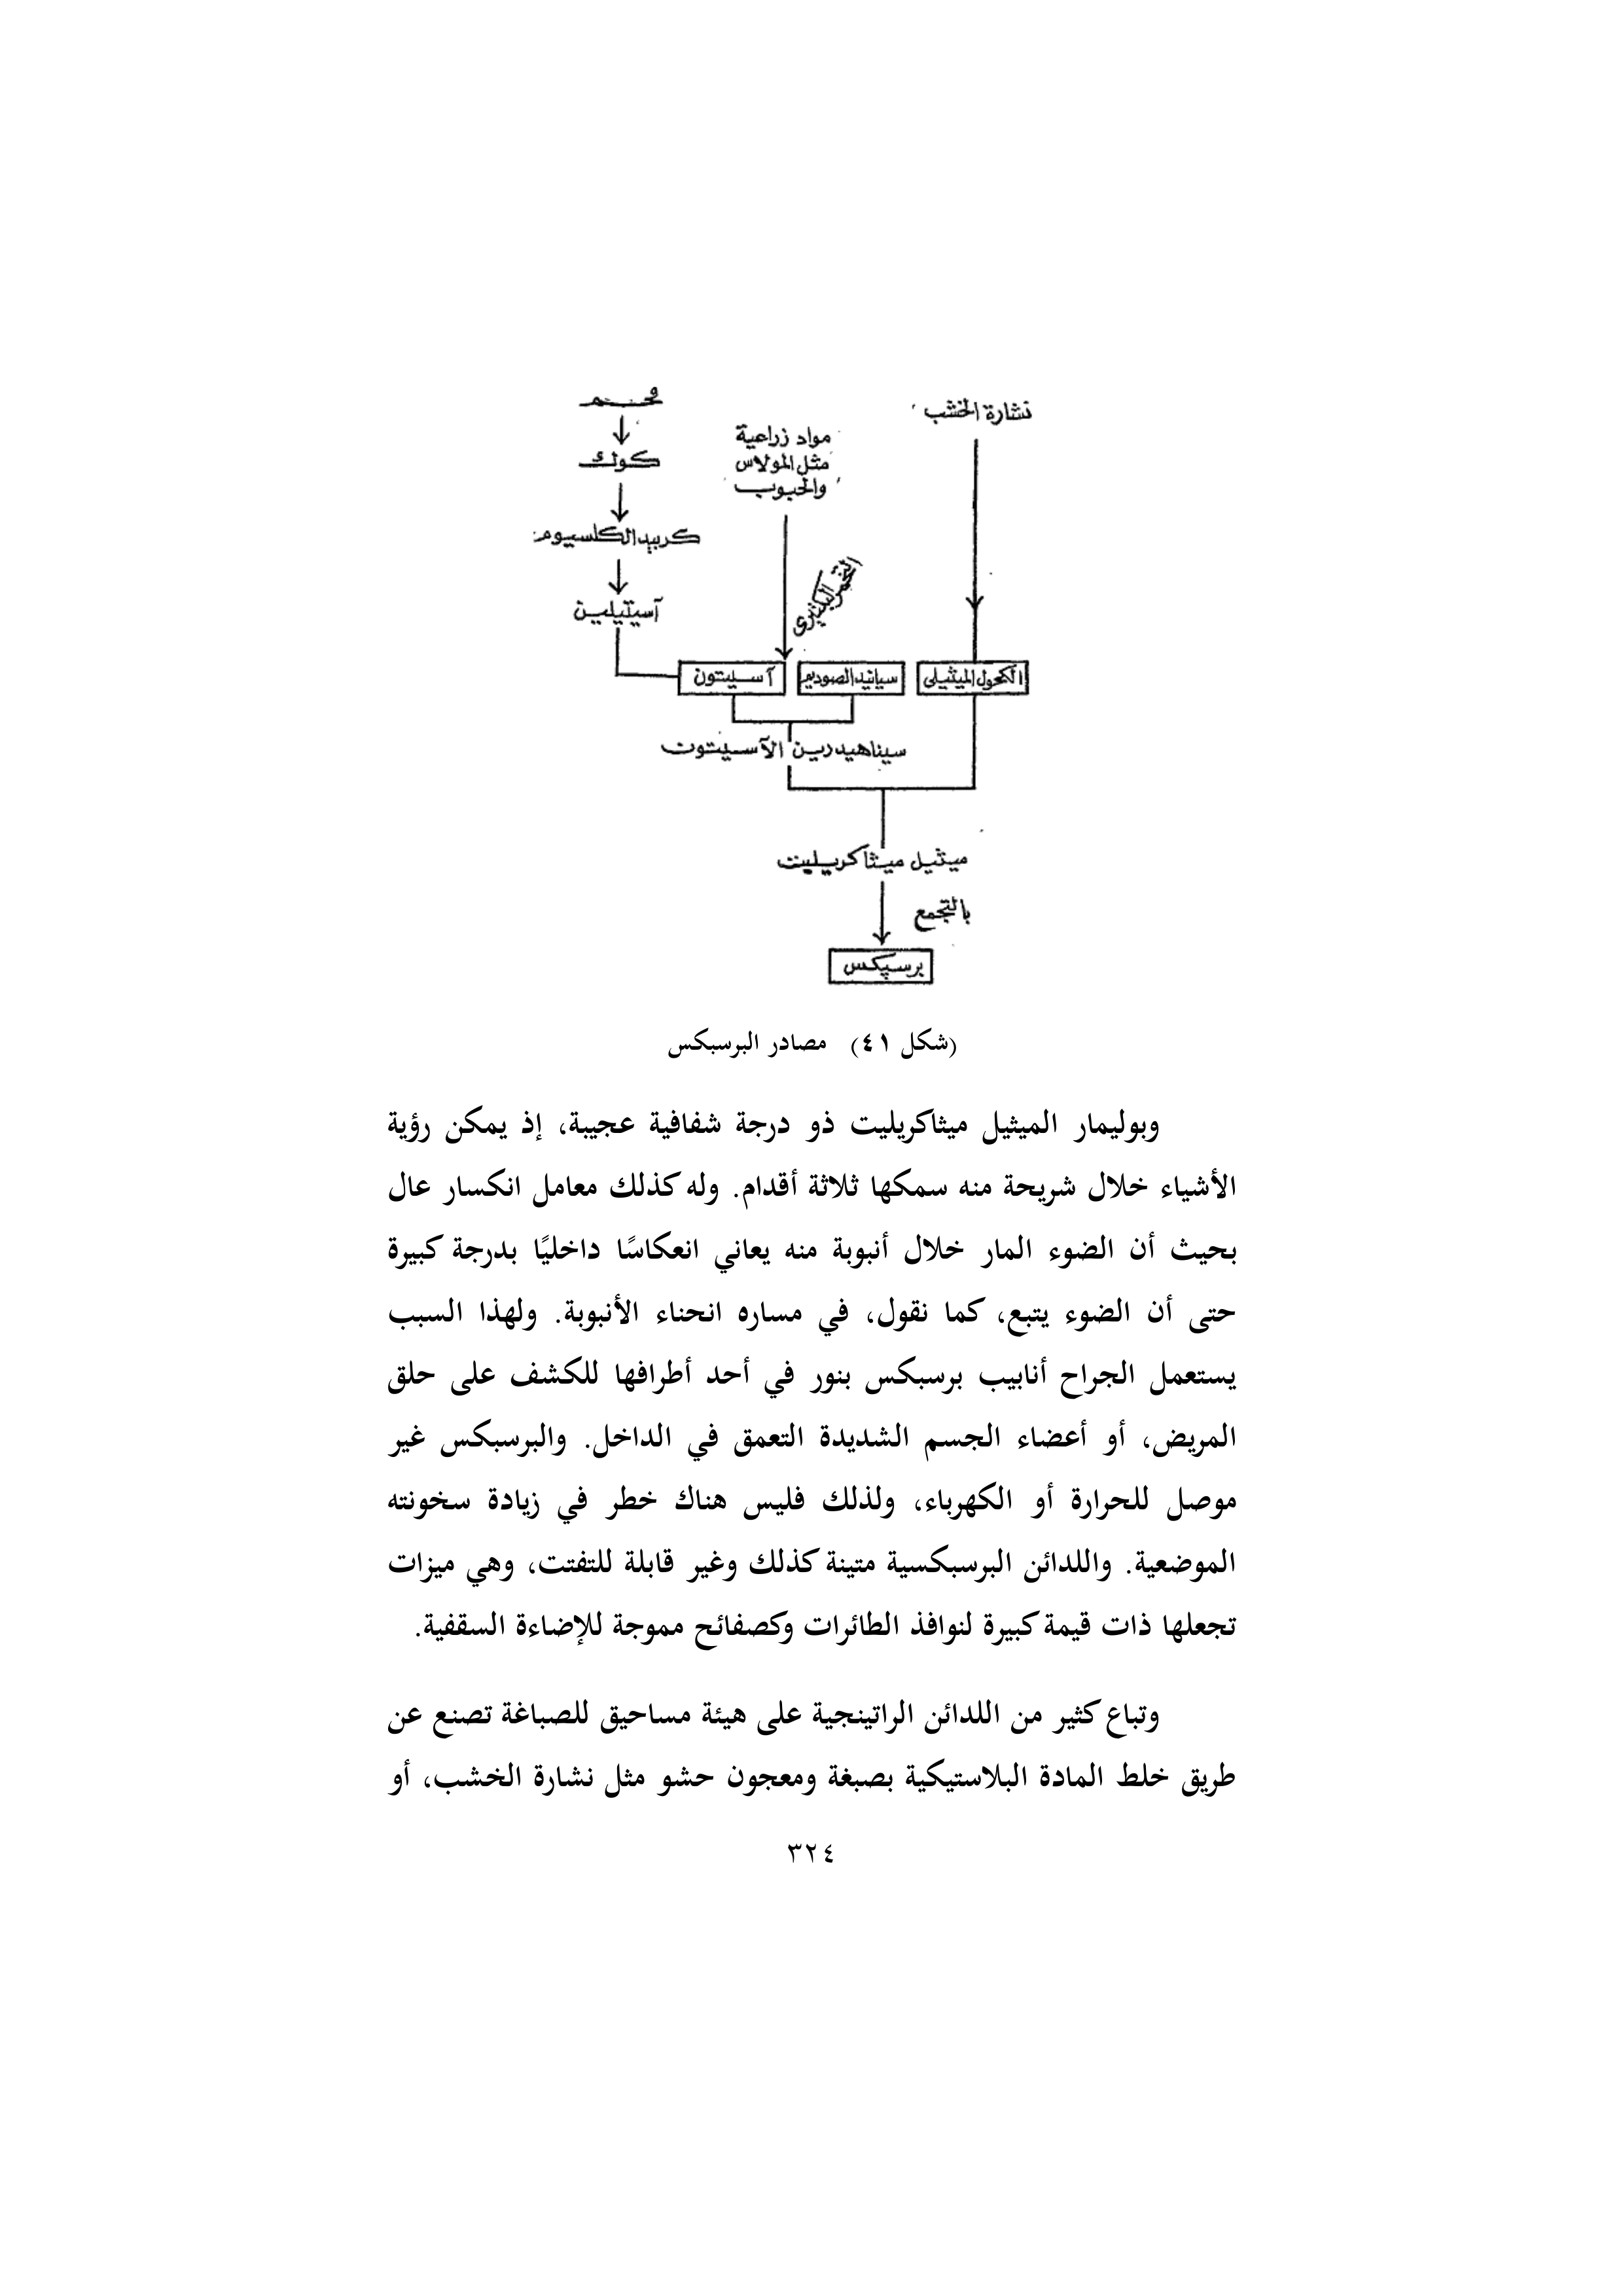 فحم
كوك
كربيد الكلسيوم
آسيتيلين
مواد زراعية
مثل المولاس
والحبوب
التخمر البكتيرى
نشارة الخشب
آسيتون
سيانيد الصوديم
الكحول الميثيلى
سيناهيدرين الآسيتون
ميثيل ميثاكريليت
بالتجمع
برسپكس
(شكل ٤١) مصادر البرسبكس
وبوليمار الميثيل ميثاكريليت ذو درجة شفافية عجيبة، إذ يمكن رؤية
الأشياء خلال شريحة منه سمكها ثلاثة أقدام. وله كذلك معامل انكسار عال
بحيث أن الضوء المار خلال أنبوبة منه يعاني انعكاسًا داخليًا بدرجة كبيرة
حتى أن الضوء يتبع، كما نقول، في مساره انحناء الأنبوبة. ولهذا السبب
يستعمل الجراح أنابيب برسبكس بنور في أحد أطرافها للكشف على حلق
المريض، أو أعضاء الجسم الشديدة التعمق في الداخل. والبرسبكس غير
موصل للحرارة أو الكهرباء، ولذلك فليس هناك خطر في زيادة سخونته
الموضعية. واللدائن البرسبكسية متينة كذلك وغير قابلة للتفتت، وهي ميزات
تجعلها ذات قيمة كبيرة لنوافذ الطائرات وكصفائح مموجة للإضاءة السقفية.
وتباع كثير من اللدائن الراتينجية على هيئة مساحيق للصباغة تصنع عن
طريق خلط المادة البلاستيكية بصبغة ومعجون حشو مثل نشارة الخشب، أو
٣٢٤